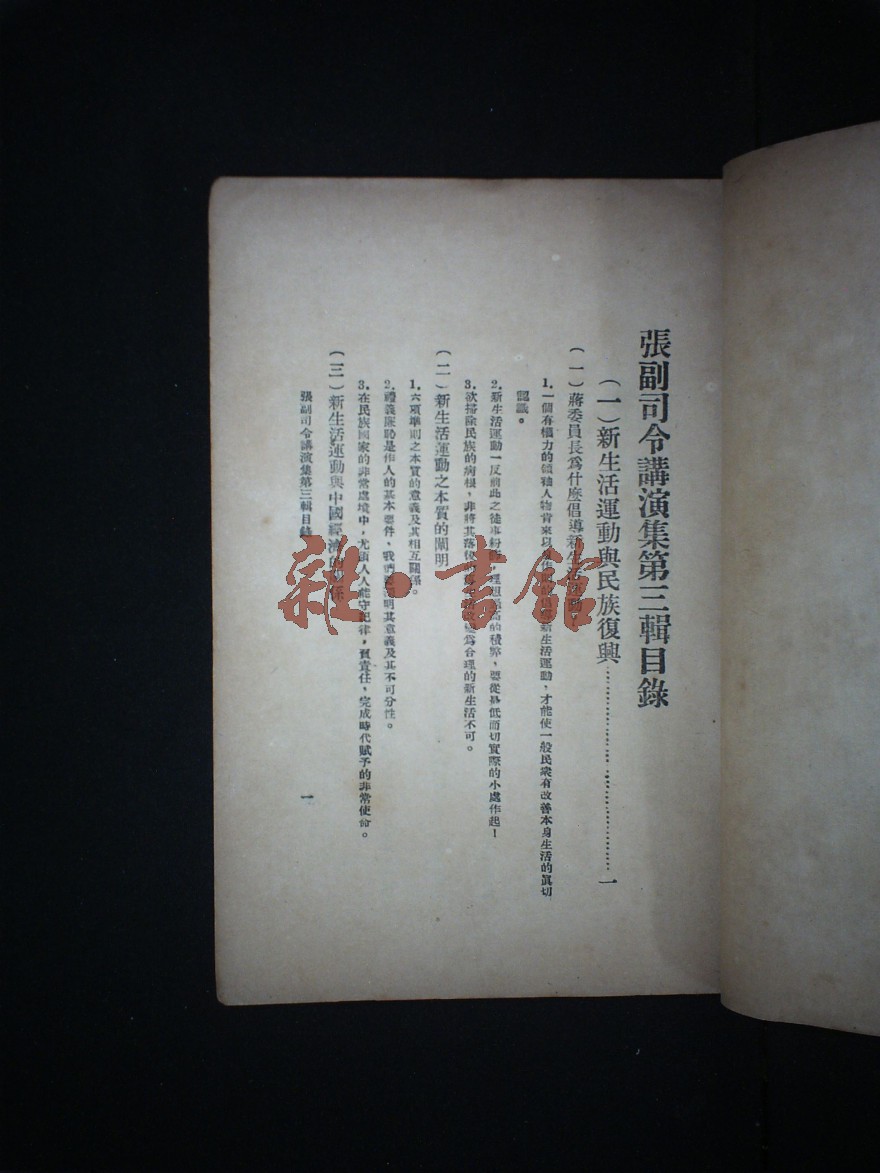 張副司令講演集第三輯目錄
(一)新生活運動與民族復興……………………一
(一)蔣委員長爲什麽倡導新生活運動?
1.一個有權力的領袖人物肯來以身作則新生活運動,才能使一般民衆有改善本身生活的眞切
認識。
2.新生活運動一反前此之徒事紛積弊,要從最低而切實際的小處作起!
3.欲掃除民族的病根,非將其落後爲合理的新生活不可。
(二)新生活運動之本質的闡明
1.六項準則之本質的意義及其相互關係。
2.禮義廉恥是作人的基本要件,我們要說明其意義及其不可分性。
3.在民族國家的非常處境中,尤須人人能守紀律,負責任,完成時代賦予的非常使命。
(三)新生活運動與中國經濟的關係
張副司令講演集第三輯目錄
一
雜·書館